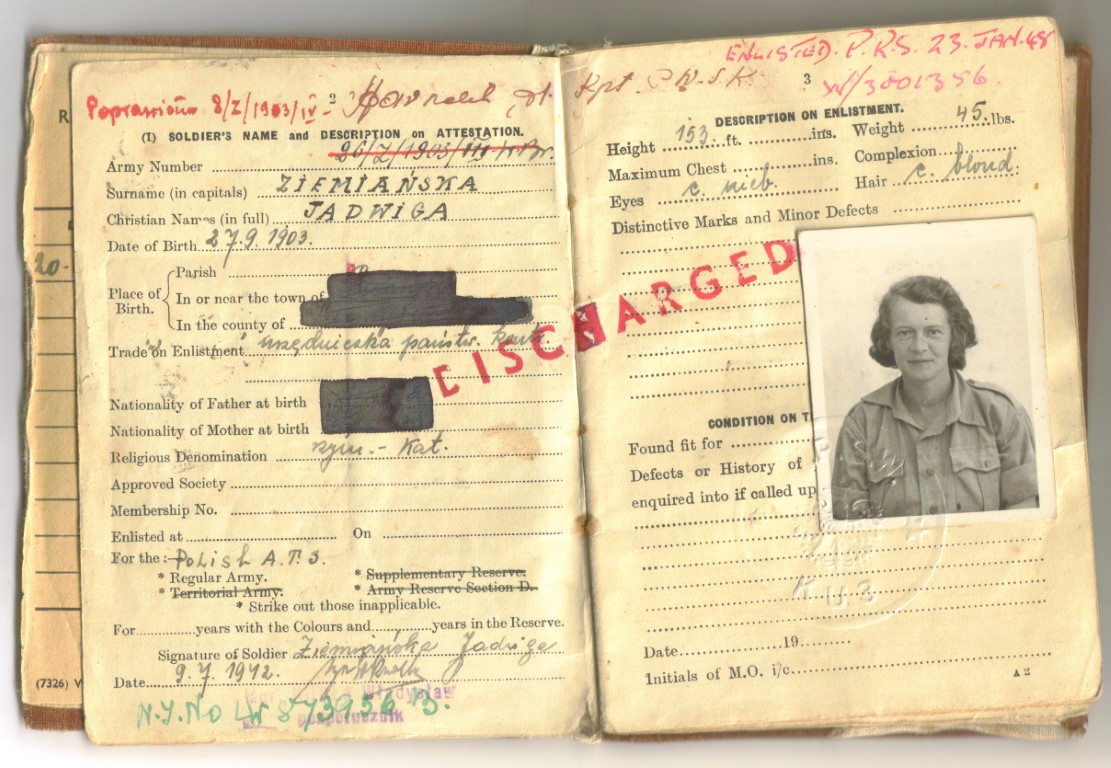 Poprawiono 8/Z/1903/IV- 2
(I) SOLDIER'S NAME and DESCRIPTION on ATTESTATION.
Army Number 26/Z/1903/III
Surname (in capitals) ZIEMIAŃSKA
Christian Names (in full) JADWIGA
Date of Birth 27.9.1903.
Place of Birth.
Parish
In or near the town of
In the county of
Trade on Enlistment urzędniczka państw. kontr.
Nationality of Father at birth
Nationality of Mother at birth
Religious Denomination rzym.-Kat.
Approved Society
Membership No.
Enlisted at On
For the:- POLISH A.T.S.
* Regular Army. * Supplementary Reserve.
* Territorial Army. * Army Reserve Section D.
* Strike out those inapplicable.
For years with the Colours and years in the Reserve.
Signature of Soldier Ziemiańska Jadwiga
Date 9.7.1942.
Władysław
podporucznik
(7326)
20-
DISCHARGED
ENLISTED. P.R.S. 23. JAN. 48
3
DESCRIPTION ON ENLISTMENT.
Height 153 ft. ins. Weight 45 lbs.
Maximum Chest ins. Complexion
Eyes c. nieb. Hair c. blond.
Distinctive Marks and Minor Defects
CONDITION ON
Found fit for
Defects or History of
enquired into if called up
Date 19
Initials of M.O. i/c
A 2